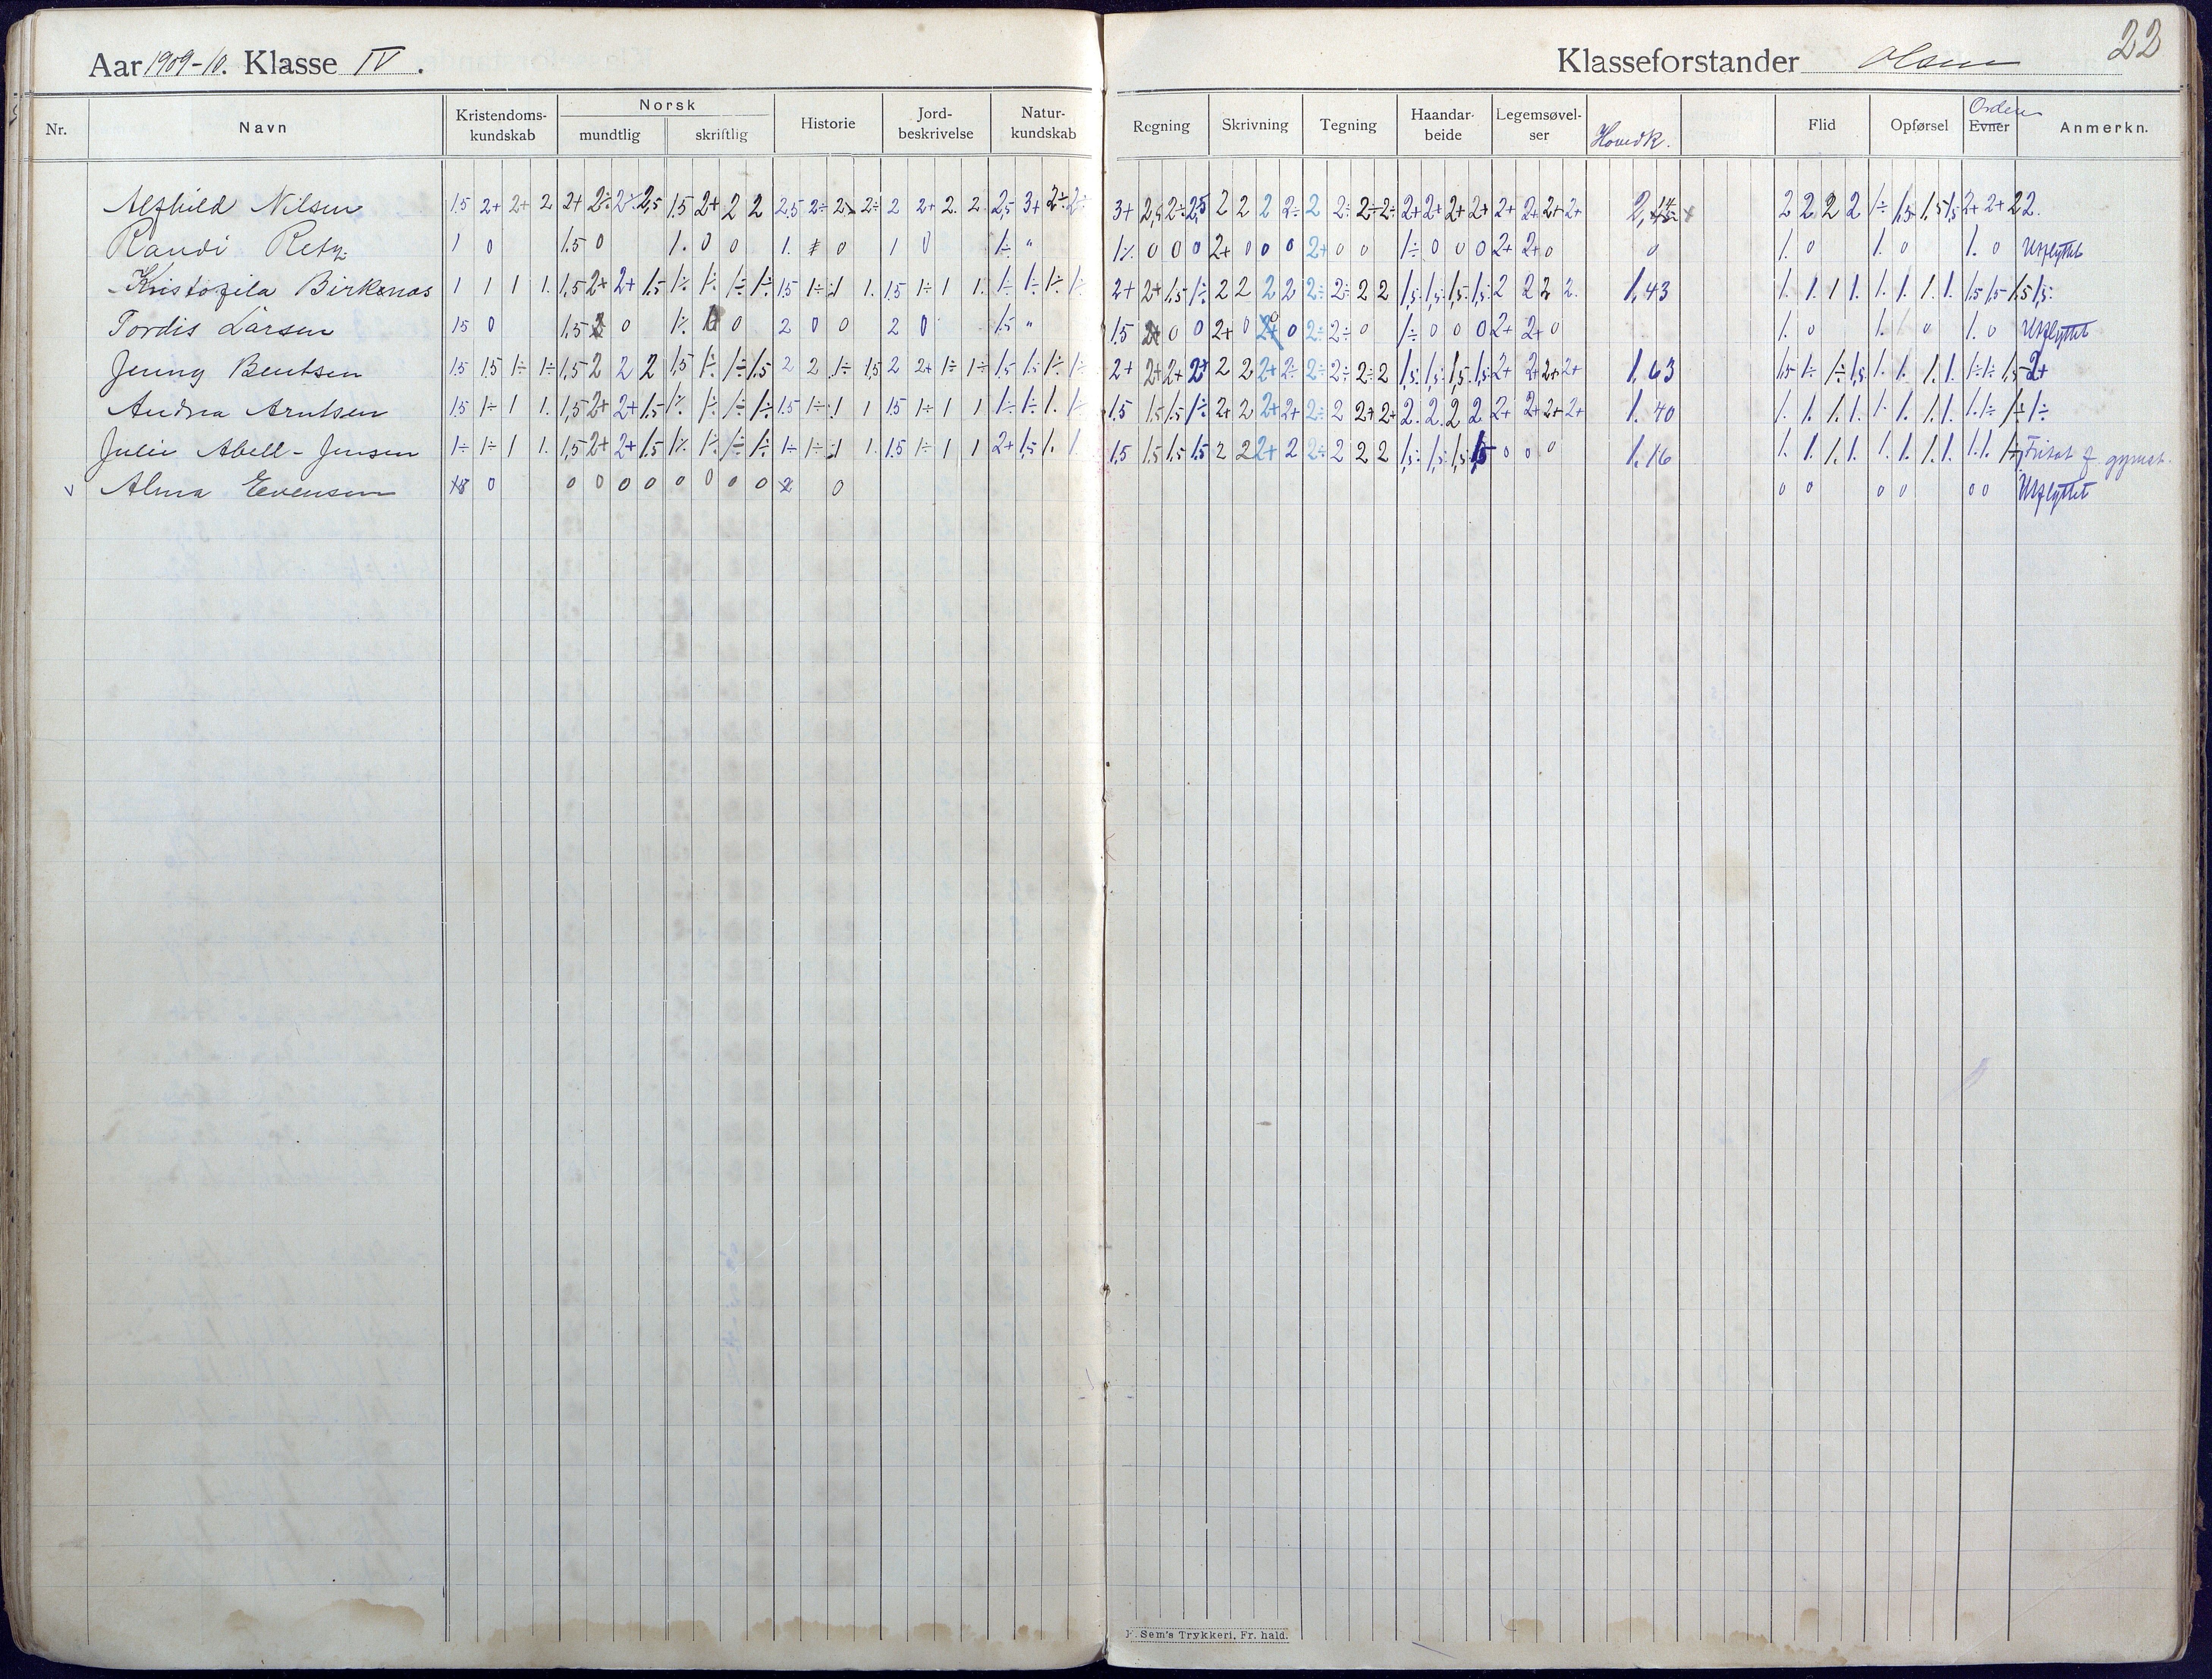 Aar 1909-10. Klasse IV.
Klasseforstander Olsen
22
Nr. Navn Kristendoms-kundskab Norsk mundtlig skriftlig Historie Jord-beskrivelse Natur-kundskab Regning Skrivning Tegning Haandar-beide Legemsøvel-ser Hovedk. Flid Opførsel Evner Orden Anmerkn.
Alfhild Nilsen 1.5 2+ 2+ 2 2+ 2÷ 2÷ 2,5 1.5 2+ 2 2 2.5 2÷ 2÷ 2 2+ 2. 2. 2,5 3+ 2÷ 2÷ 3+ 2÷ 2,5 2 2 2 2÷ 2 2÷ 2÷ 2÷ 2+ 2+ 2+ 2+ 2+ 2+ 2+ 2+ 2 2 2 2 1÷ 1,5 1,5 1,5 2+ 2+ 2 2.
Randi Retz 1 0 1.5 0 1. 0 0 1. 0 1 0 1÷ " 1÷ 0 0 0 2+ 0 0 0 2+ 0 0 1÷ 0 0 0 2+ 2+ 0 0 1. 0 1. 0 1. 0 Utflyttet
Kristofila Birkenæs 1 1 1 1. 1,5 2+ 2+ 1,5 1÷ 1÷ 1÷ 1÷ 1.5 1÷ 1 1. 1.5 1÷ 1 1. 1÷ 1÷ 1÷ 1÷ 2+ 2+ 1,5 1÷ 2 2 2 2 2÷ 2÷ 2 2 1,5 1,5 1,5 1,5 2 2 2 2. 1,43 1. 1. 1 1. 1. 1. 1. 1. 1.5 1.5 1,5 1,5
Tordis Larsen 1.5 0 1.5 0 1÷ 0 2 0 0 2 0 1.5 " 1.5 2+ 0 0 2+ 0 0 2÷ 2÷ 0 1÷ 0 0 0 2+ 2+ 0 1. 0 1. 0 1. 0 Utflyttet
Jenny Bentsen 1.5 1.5 1÷ 1÷ 1,5 2 2 2 1.5 1÷ 1÷ 1.5 2 2 1÷ 1.5 2 2+ 1÷ 1÷ 1,5 1,5 1÷ 1÷ 2+ 2+ 2+ 2+ 2 2 2+ 2÷ 2÷ 2÷ 2÷ 2 1,5 1,5 1,5 1,5 2+ 2+ 2+ 2+ 1,63 1,5 1÷ 1÷ 1,5 1. 1. 1. 1. 1÷ 1÷ 1,5 2+
Andrea Arntsen 1.5 1÷ 1 1. 1,5 2+ 2+ 1,5 1÷ 1÷ 1÷ 1÷ 1.5 1÷ 1 1 1.5 1÷ 1 1 1÷ 1÷ 1. 1÷ 1.5 1.5 1.5 1÷ 2+ 2 2+ 2+ 2÷ 2 2+ 2+ 2. 2. 2 2 2+ 2+ 2+ 2+ 1.40 1. 1. 1. 1. 1. 1. 1. 1. 1. 1÷ 1÷ 1÷
Julie Abell-Jensen 1÷ 1÷ 1 1. 1,5 2+ 2+ 1,5 1÷ 1÷ 1÷ 1÷ 1÷ 1÷ 1 1. 1.5 1÷ 1 1 2+ 1,5 1. 1. 1.5 1.5 1.5 1.5 2 2 2+ 2 2÷ 2 2 2 1,5 1,5 1,5 1,5 0 0 0 1.16 1. 1. 1. 1. 1. 1. 1. 1. 1. 1. 1÷ Fritat f. gymnt.
Alma Evensen 0 0 0 0 0 0 0 0 0 0 0 0 0 0 0 0 Utflyttet
F. Sem's Trykkeri, Fr. hald.